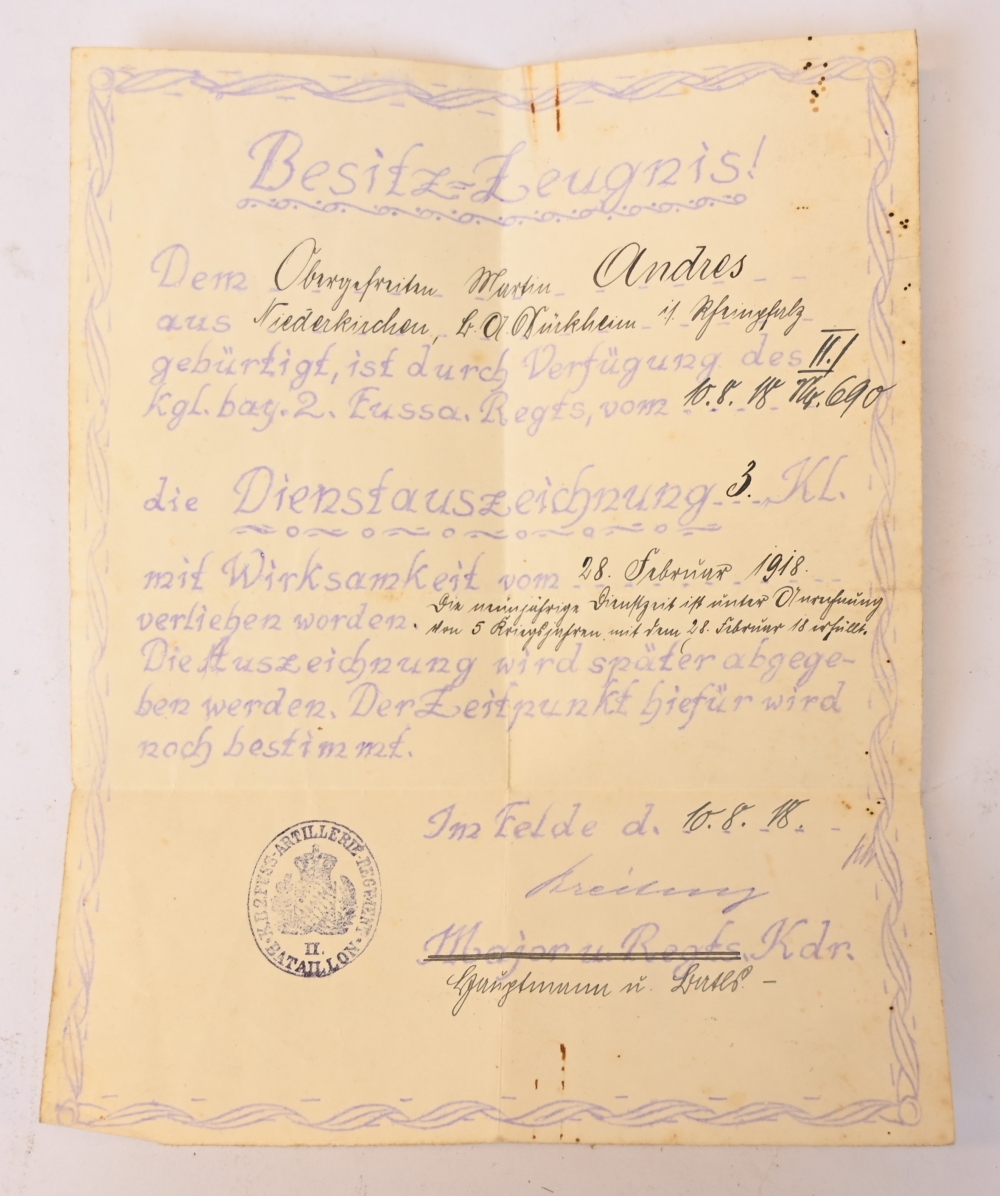 Besitz=Zeugnis!
Dem Obergefreiten Martin Andres
aus Niederkirchen, b. A. Dürkheim i/ Rheinpfalz
gebürtigt, ist durch Verfügung des II./
Kgl. bay. 2. Fussa. Regts, vom 10.8.18 Nr. 690
die Dienstauszeichnung 3. Kl.
mit Wirksamkeit vom 28. Februar 1918.
verliehen worden. Die neunjährige Dienstzeit ist unter Anrechnung
von 5 Kriegsjahren mit dem 28. Februar 18 erfüllt.
Die Auszeichnung wird später abgege-
ben werden. Der Zeitpunkt hiefür wird
noch bestimmt.
Im Felde d. 10.8.18.
K.B.2.FUSS-ARTILLERIE-REGIMENT
II.
BATAILLON
Major u. Regts. Kdr.
Hauptmann u. Batls. -